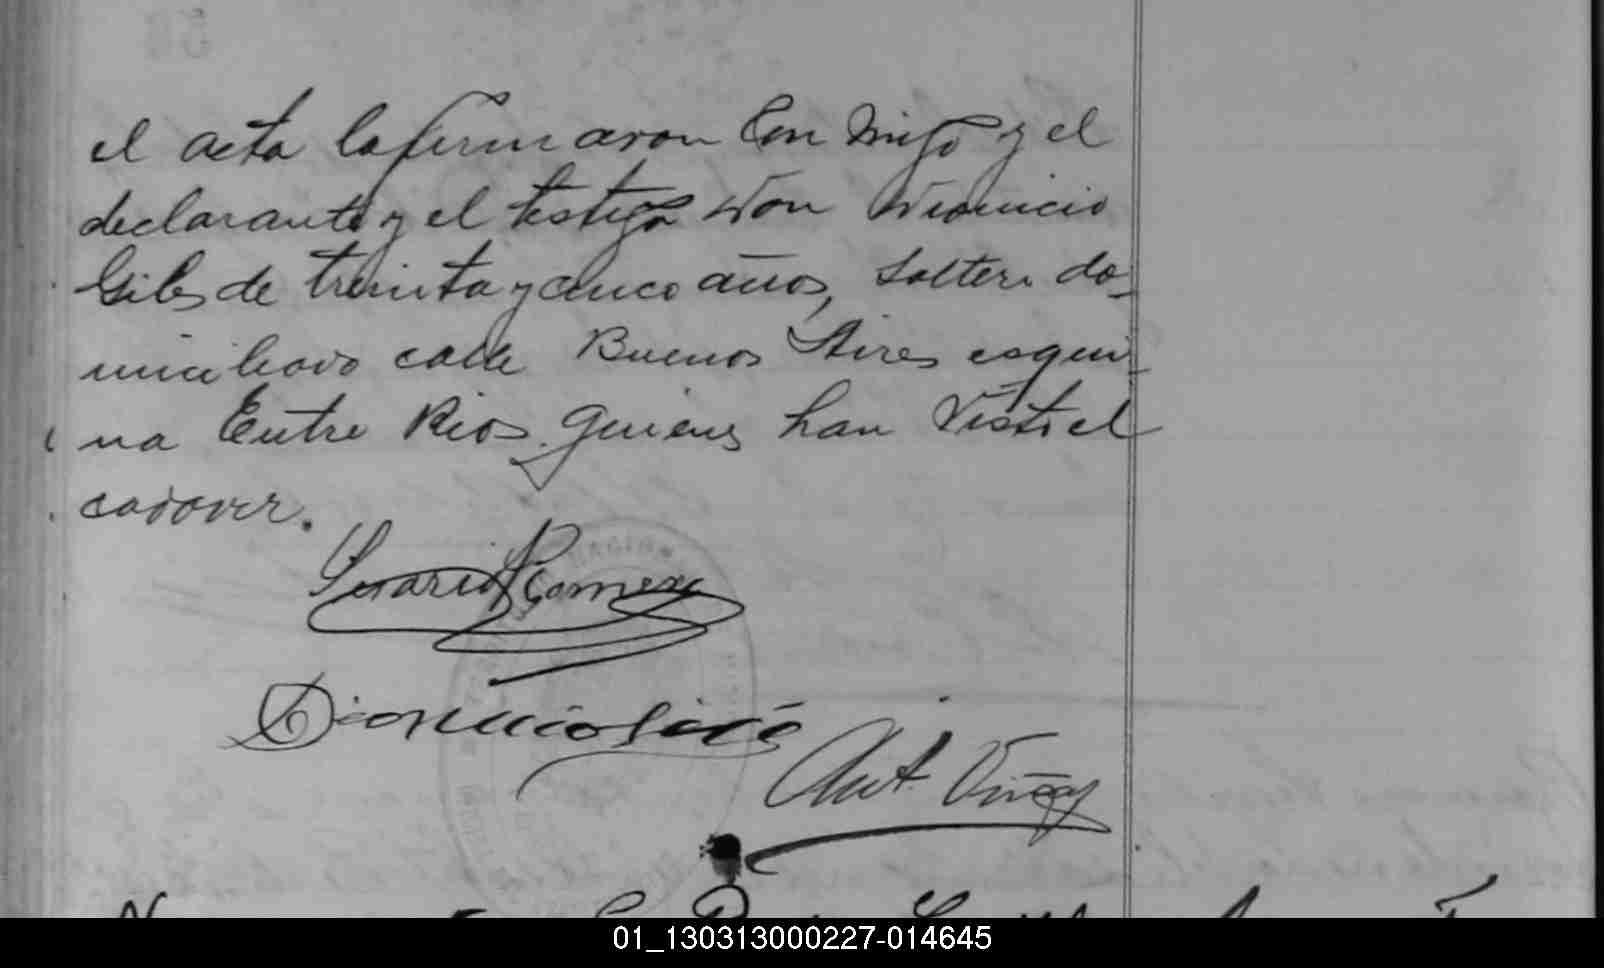 el acta la firmaron con migo y el
declarante y el testigo Don Dionicio
Giles de treinta y cinco años, soltero do-
miciliado calle Buenos Aires esqui-
na Entre Rios. quienes han visto el
cadaver.
Dionicio
Ant.
01_130313000227-014645